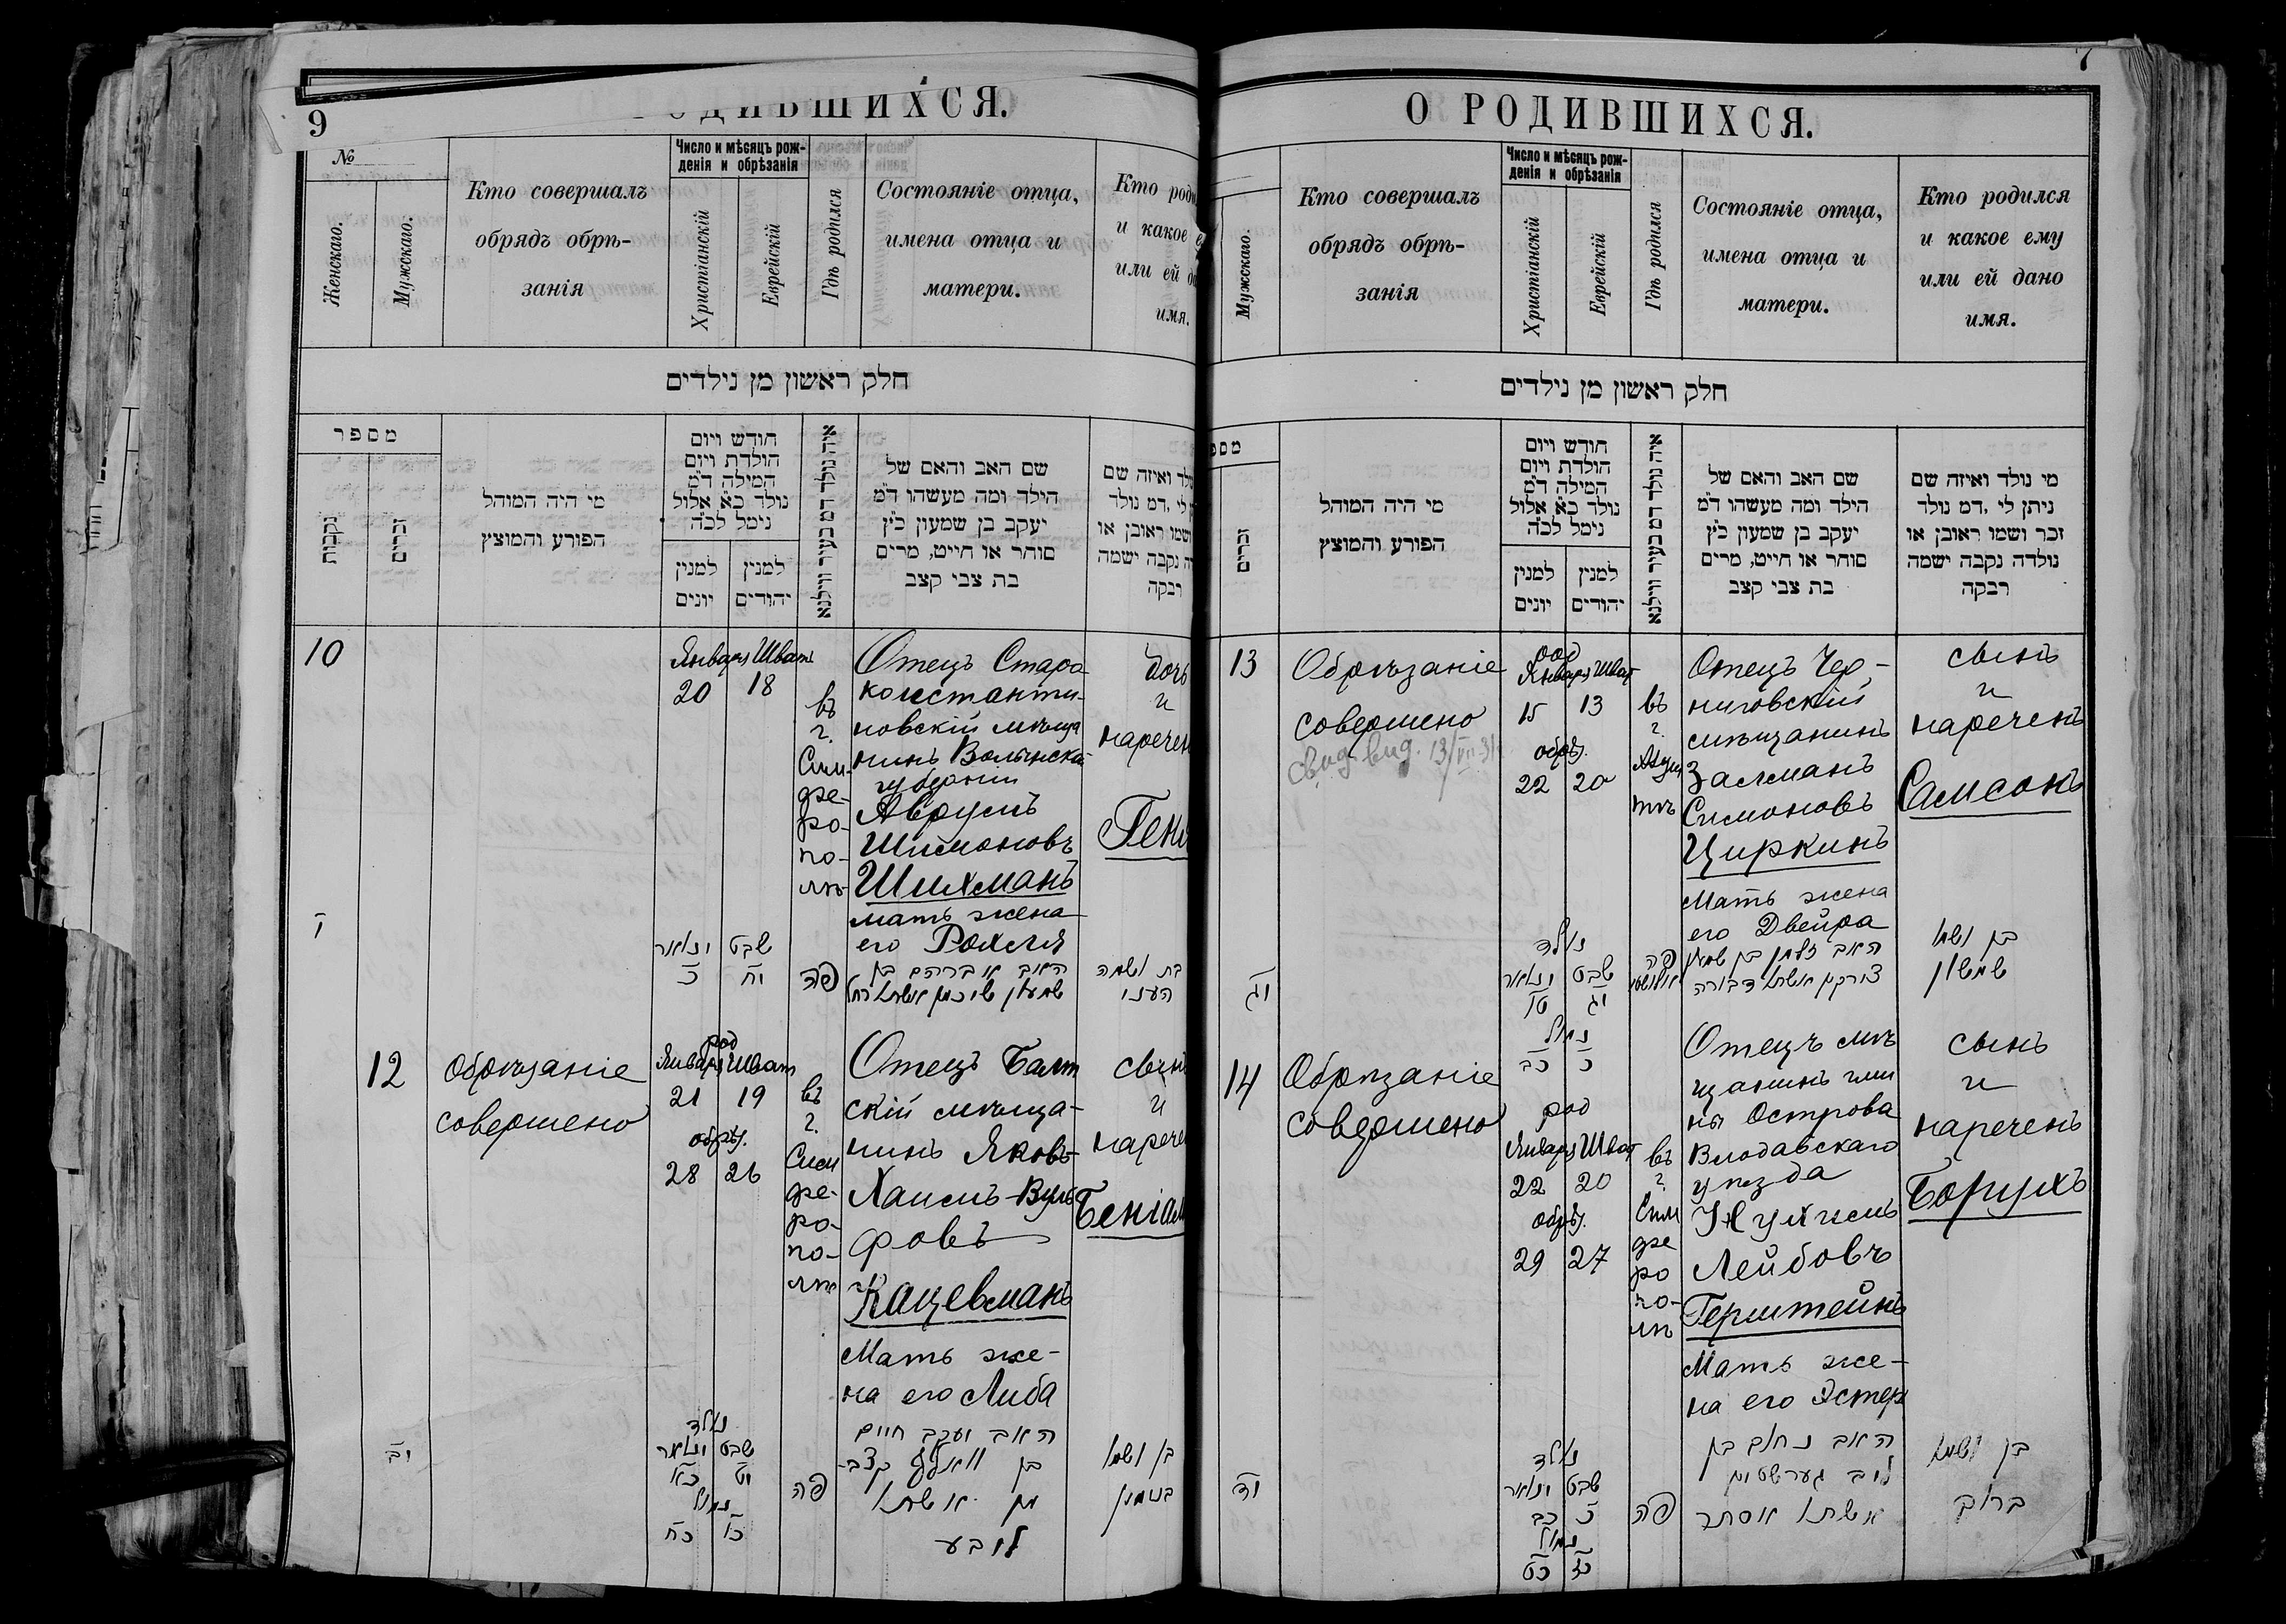 9
РОДИВШИХСЯ.
№
Женскаго.
Мужскаго.
Кто совершалъ
обрядъ обрѣ-
занія
Число и мѣсяцъ рож-
денія и обрѣзанія
Христіанскій
Еврейскій
Гдѣ родился
Состояніе отца,
имена отца и
матери.
Кто роди
и какое е
или ей да
имя.
חלק ראשון מן נילדים
מספר
נקבות
זכרים
מי היה המוהל
הפורע והמוצץ
חודש ויום
הולדת ויום
המילה ד״מ
נולד כ״א אלול
נימל לכ״ה
למנין
יונים
למנין
יהודים
איה נולד דמ בעיר ווילנא
שם האב והאם של
הילד ומה מעשהו ד״מ
יעקב בן שמעון כ״ץ
סוחר או חייט, מרים
בת צבי קצב
ולד ואיזה שם
לי, דמ נולד
ושמו ראובן או
ה נקבה ישמה
רבקה
10
Январь Шватъ
20 18
въ
г.
Сим-
фе-
ро-
по-
лѣ
Отецъ Старо
константи-
новскій мѣща
нинъ Волынской
губерніи
Аврумъ
Шимоновъ
Шихманъ
мать жена
его Рохля
дочь
и
наречен
Гени
י
ינואר שבט
כ יח
פה
האב אברהם בן
שמעון שיכמן אשתו רחל
בת ושמה
הענו
12
Обрѣзаніе
совершено
род
Январь Шват
21 19
обрѣз.
28 26
въ
г.
Сим
фе-
ро-
по-
лѣ
Отецъ Балт
скій мѣща-
нинъ Яковъ-
Хаимъ-Вуль
фовъ
Кацевманъ
Мать же-
на его Либа
сынъ
и
нарече
Беніам
יב
נולד
ינואר שבט
כא יט
נמול
כח כו
פה
האב יעקב חיים
בן וואלף קצב-
מן אשתו
ליבע
בן ושמו
בנימין
7
О РОДИВШИХСЯ.
Мужскаго.
Кто совершалъ
обрядъ обрѣ-
занія
Число и мѣсяцъ рож-
денія и обрѣзанія
Христіанскій
Еврейскій
Гдѣ родился
Состояніе отца,
имена отца и
матери.
Кто родился
и какое ему
или ей дано
имя.
חלק ראשון מן נילדים
מספ
זכרים
מי היה המוהל
הפורע והמוצץ
חודש ויום
הולדת ויום
המילה ד״מ
נולד כ״א אלול
נימל לכ״ה
למנין
יונים
למנין
יהודים
איה נולד דמ בעיר ווילנא
שם האב והאם של
הילד ומה מעשהו ד״מ
יעקב בן שמעון כ״ץ
סוחר או חייט, מרים
בת צבי קצב
מי נולד ואיזה שם
ניתן לי, דמ נולד
זכר ושמו ראובן או
נולדה נקבה ישמה
רבקה
13
Обрѣзаніе
совершено
Свид. выд. 13/VII 31
род
Январь Шват
15 13
обрѣз.
22 20
въ
г.
Алуш
тѣ
Отецъ Чер-
ниговскій
мѣщанинъ
Залманъ
Симоновъ
Циркинъ
Мать жена
его Двейра
сынъ
и
нареченъ
Самсонъ
יג
נולד
ינואר שבט
טו יג
נמול
כב כ
פה
האב זלמן בן שמעון
צירקין אשתו דבורה
בן ושמו
שמשון
14
Обрѣзаніе
совершено
род
Январь Шват
22 20
обрѣз.
29 27
въ
г.
Сим
фе
ро
по-
лѣ
Отецъ мѣ
щанинъ гми
ны Острова
Влодавскаго
уѣзда
Нухимъ
Лейбовъ
Герштейнъ
Мать же-
на его Эстер
сынъ
и
нареченъ
Борухъ
יד
נולד
ינואר שבט
כב כ
נמול
כט כז
פה
האב נחום בן
ליב גערשטיין
אשתו אסתר
בן ושמו
ברוך